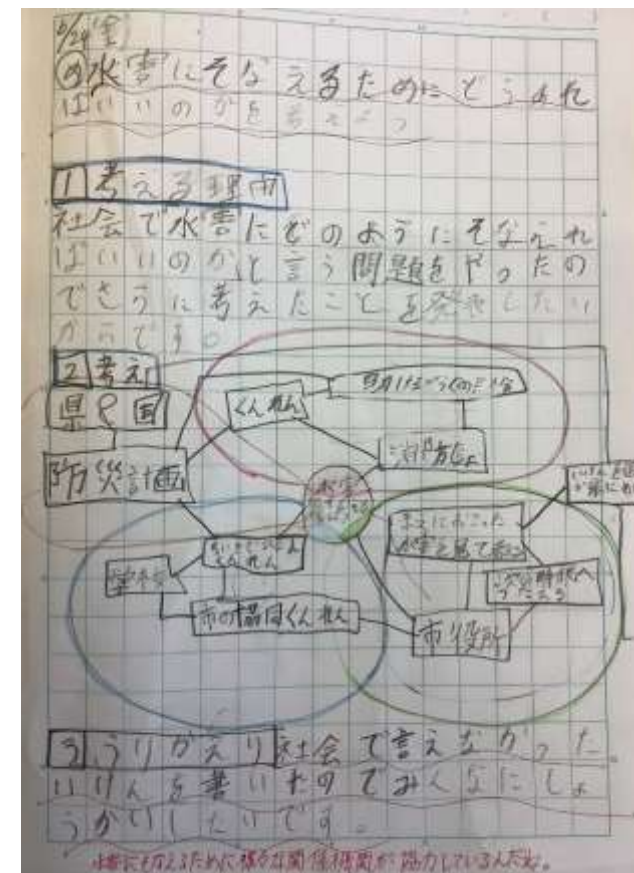 5/24(金)
め水害にそなえるためにどうすれ
ばいいのかを考えよう
1考える理由
社会で水害にどのようにそなえれ
ばいいのか、と言う問題をやったの
でさらに考えたことを発表したい
からです。
2考え
県や国
くんれん
防災計画
消防だん
水害
まえにおこった
水害を見て
市の協同くんれん
市役所
3ふりかえり社会で言えなかった
いけんを書いたのでみんなにしょ
うかいしたいです。
水害にそなえるために様々な関係機関が協力しているんだね。